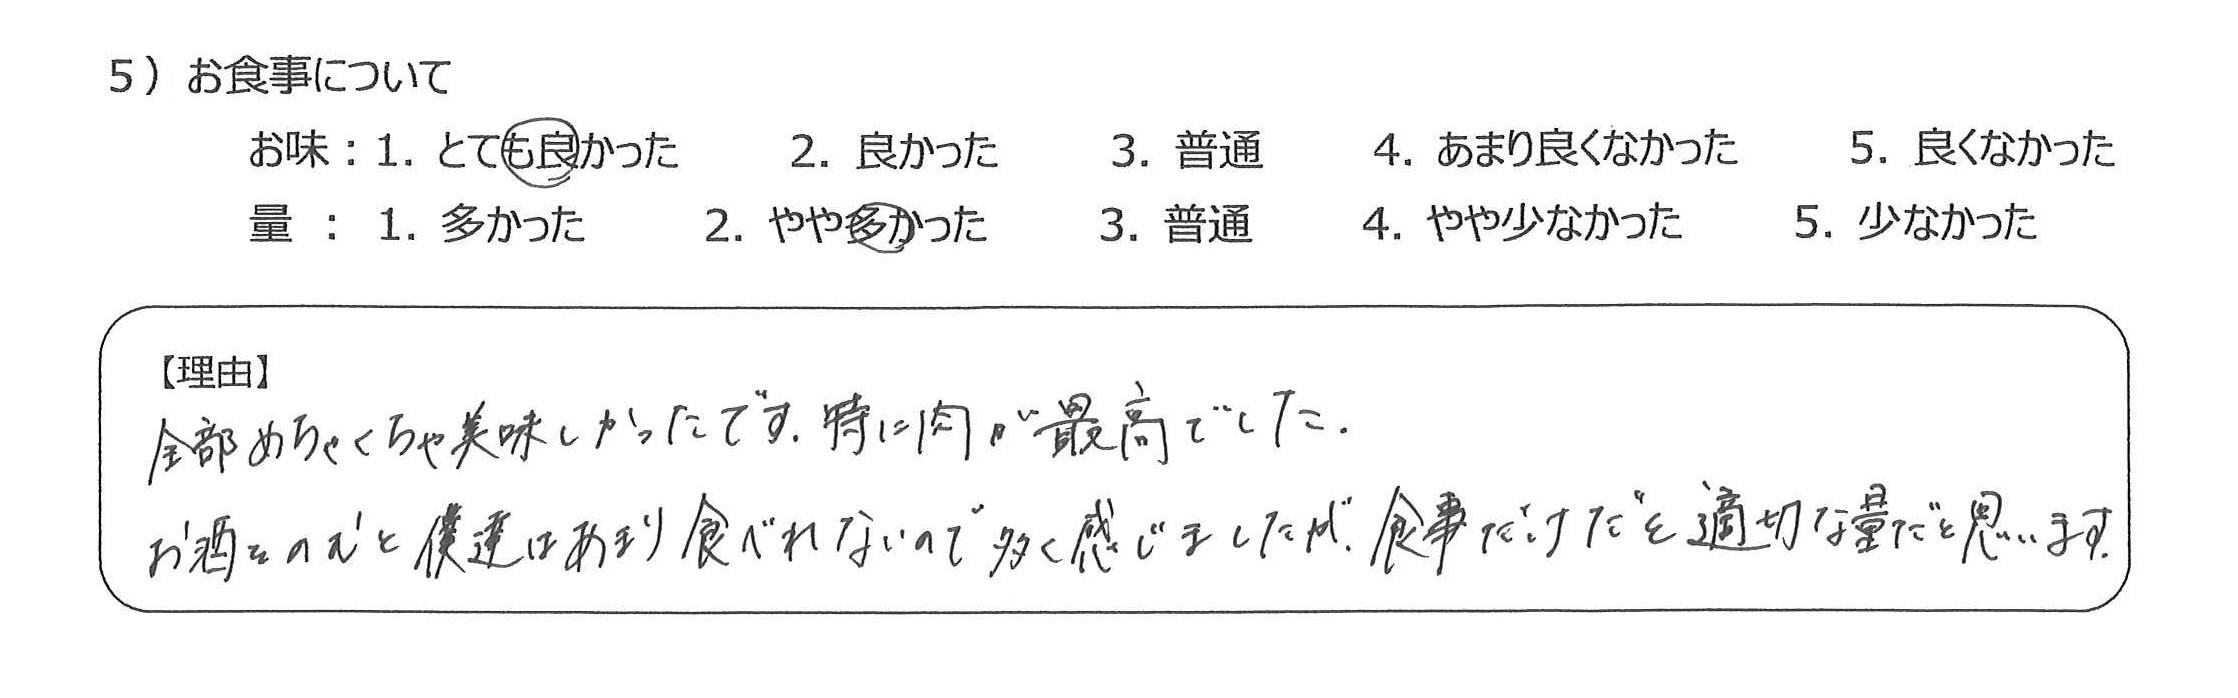 5）お食事について
お味：1. とても良かった 2. 良かった 3. 普通 4. あまり良くなかった 5. 良くなかった
量 ： 1. 多かった 2. やや多かった 3. 普通 4. やや少なかった 5. 少なかった
【理由】
全部めちゃくちゃ美味しかったです. 特に肉が最高でした.
お酒をのむと僕達はあまり食べれないので多く感じましたが、食事だけだと適切な量だと思います.